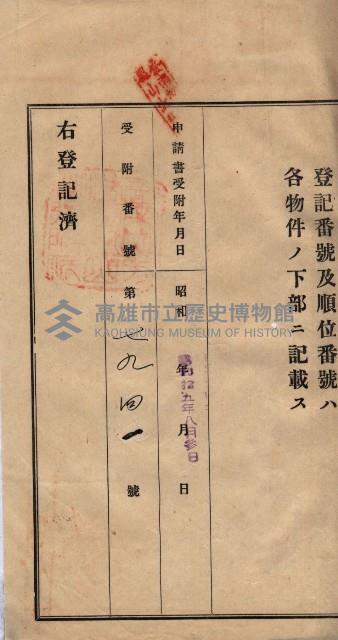 登記番號及順位番號ハ
各物件ノ下部ニ記載ス
申請書受附年月日
昭和 年 月 日
昭和拾五年八月參日
受附番號
第七九四一號
右登記濟
高雄市立歷史博物館
KAOHSIUNG MUSEUM OF HISTORY